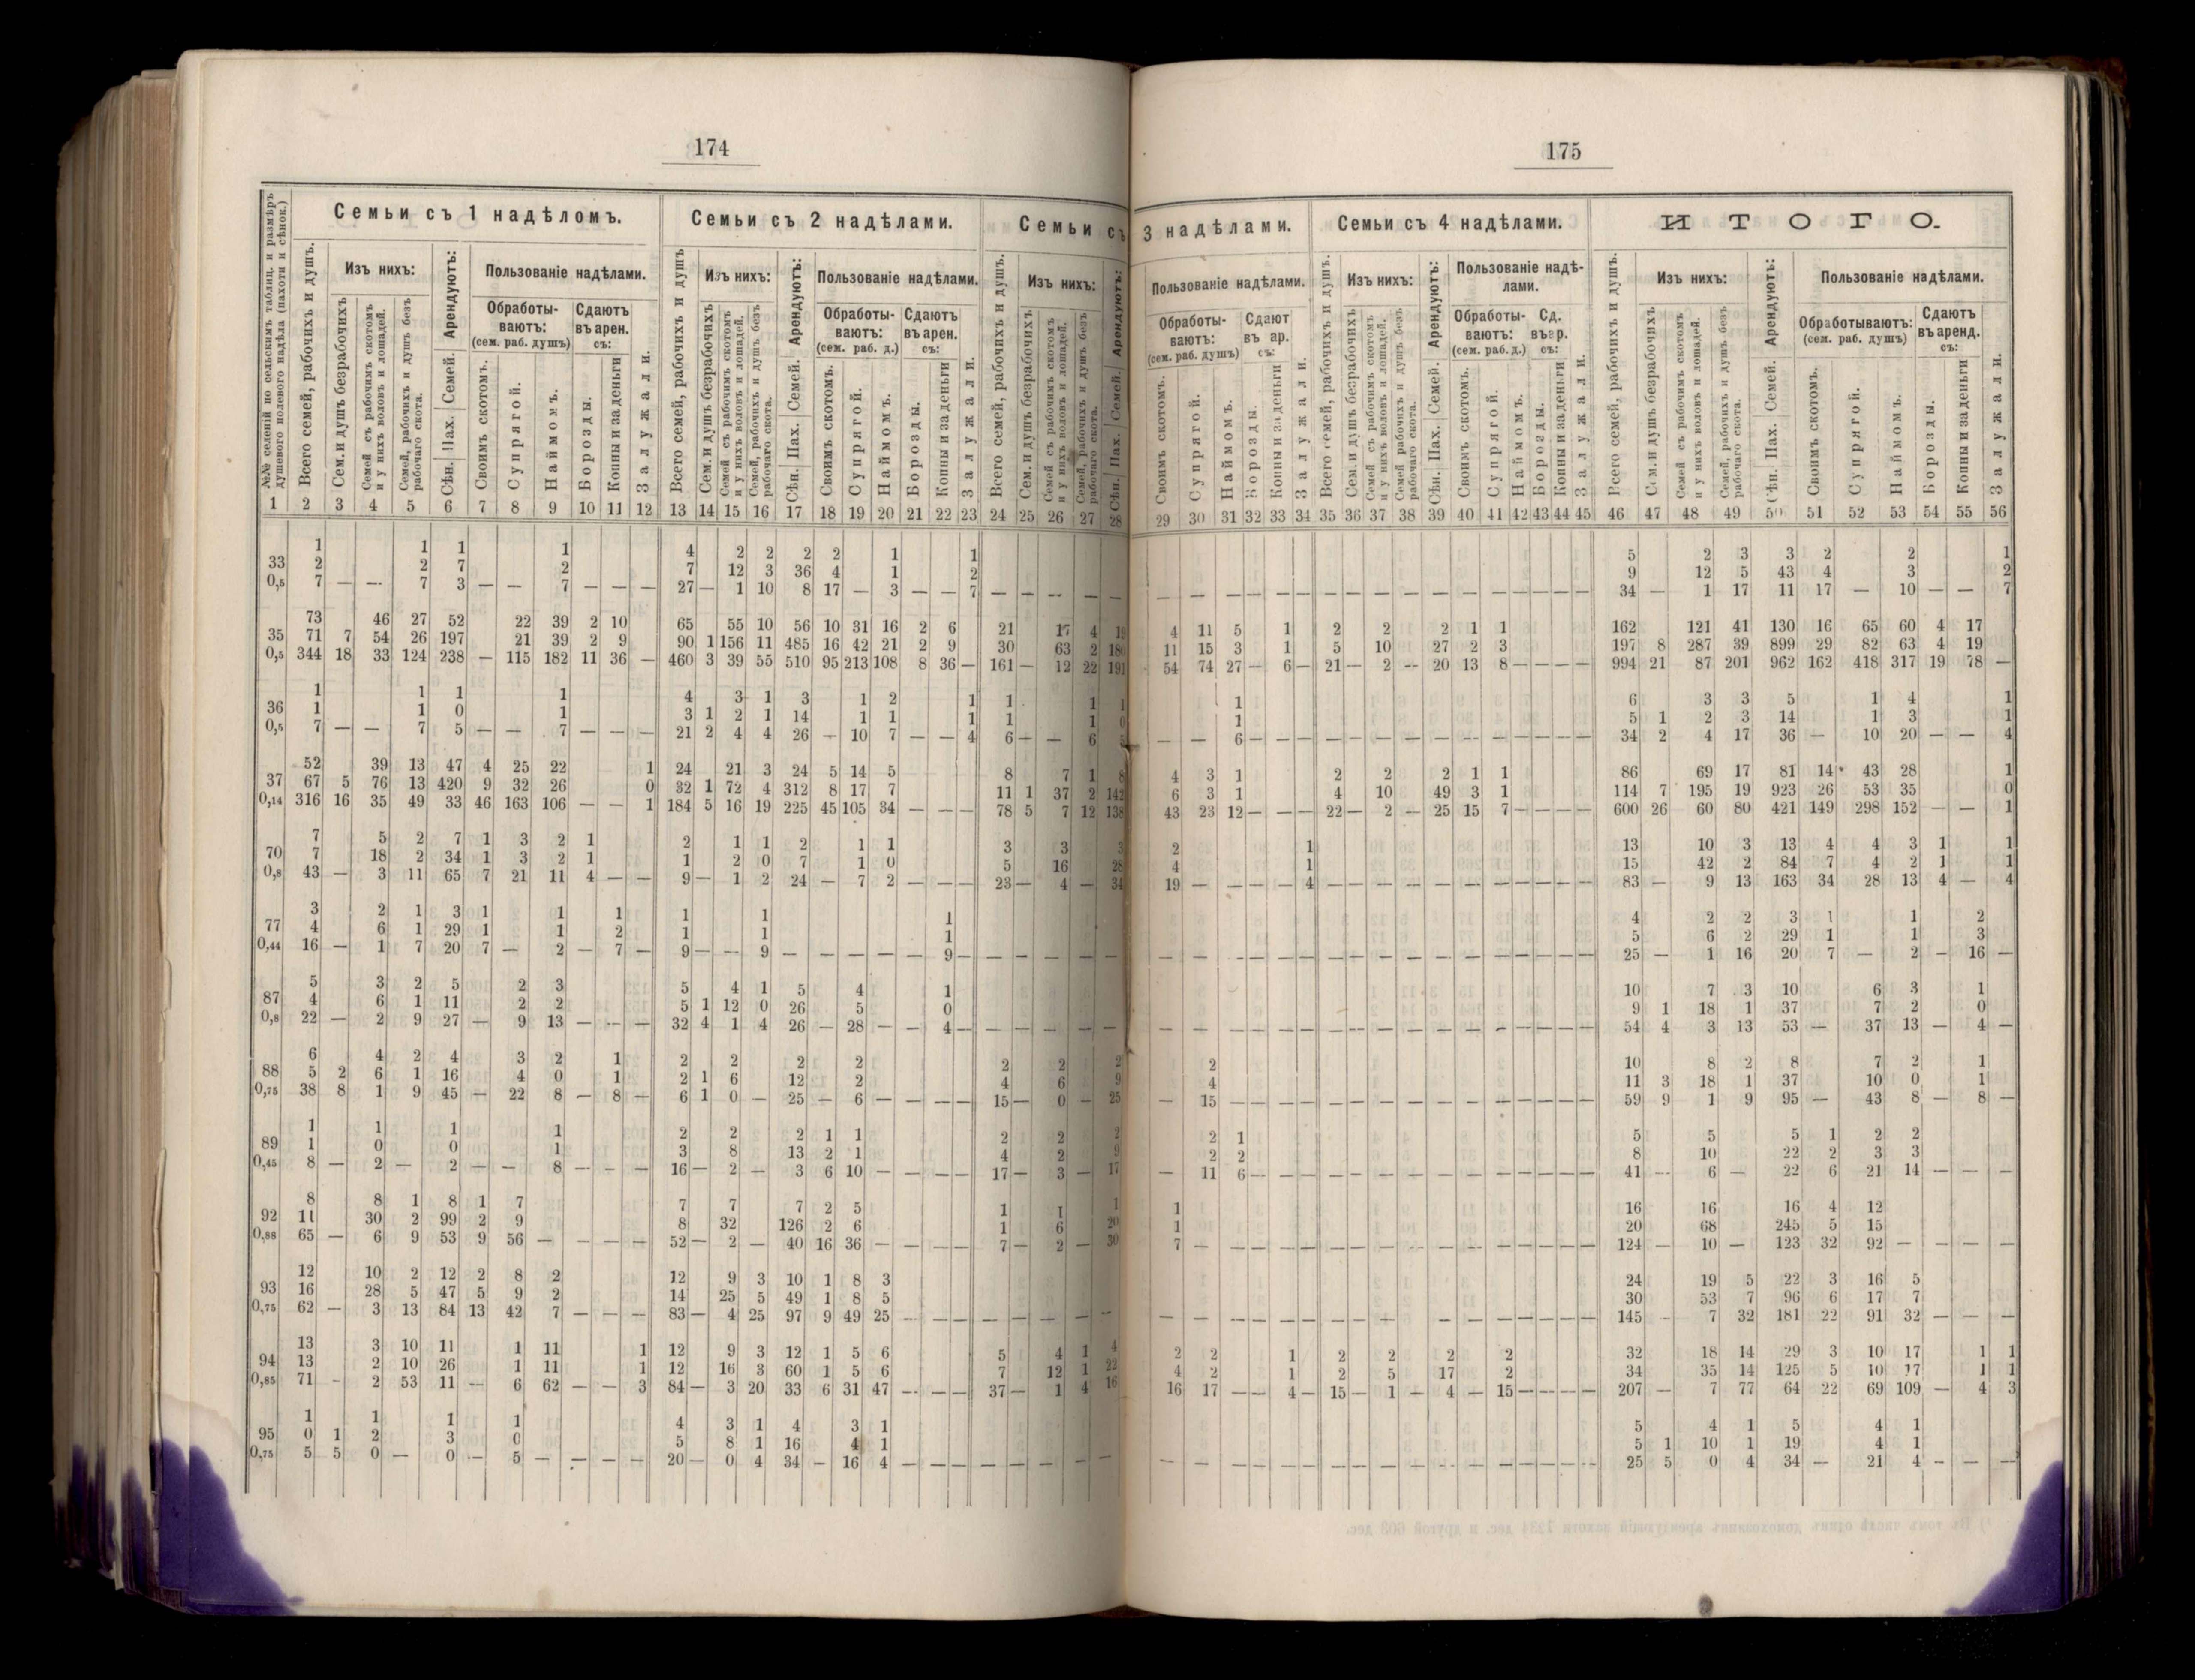 174
175
Семьи съ 1 надѣломъ.
Семьи съ 2 надѣлами.
Семьи съ 3 надѣлами.
Семьи съ 4 надѣлами.
ИТОГО.
№№ селеній по сельскимъ таблиц. и размѣръ душеваго полеваго надѣла (пахоти и сѣнок.)
Всего семей, рабочихъ и душъ.
Изъ нихъ:
Сем. и душъ безрабочихъ
Семей съ рабочимъ скотомъ и у нихъ воловъ и лошадей.
Семей, рабочихъ и душъ безъ рабочаго скота.
Арендуютъ:
Сѣн. Пах. Семей.
Пользованіе надѣлами.
Обработываютъ: (сем. раб. душъ)
Своимъ скотомъ.
Супрягой.
Наймомъ.
Сдаютъ въ арен. съ:
Борозды.
Копны и за деньги
Залужали.
1 2 3 4 5 6 7 8 9 10 11 12 13 14 15 16 17 18 19 20 21 22 23 24 25 26 27 28 29 30 31 32 33 34 35 36 37 38 39 40 41 42 43 44 45 46 47 48 49 50 51 52 53 54 55 56
1 1 1 1 4 2 2 2 2 1 1 5 2 3 3 2 2 1
33 2 2 7 2 7 12 3 36 4 1 2 9 12 5 43 4 3 2
0,5 7 — — 7 3 — — 7 — — — 27 — 1 10 8 17 — 3 — — 7 — — — — — — — — — — — — — — — — — — — — — — 34 — 1 17 11 17 — 10 — — 7
73 46 27 52 22 39 2 10 65 55 10 56 10 31 16 2 6 21 17 4 19 4 11 5 1 2 2 2 1 1 162 121 41 130 16 65 60 4 17
35 71 7 54 26 197 21 39 2 9 90 1 156 11 485 16 42 21 2 9 30 63 2 180 11 15 3 1 5 10 27 2 3 197 8 287 39 899 29 82 63 4 19
0,5 344 18 33 124 238 — 115 182 11 36 — 460 3 39 55 510 95 213 108 8 36 — 161 — 12 22 191 54 74 27 — 6 — 21 — 2 — 20 13 8 — — — — 994 21 87 201 962 162 418 317 19 78 —
1 1 1 1 4 3 1 3 1 2 1 1 1 1 1 6 3 3 5 1 4 1
36 1 1 0 1 3 1 2 1 14 1 1 1 1 1 0 1 5 1 2 3 14 1 3 1
0,5 7 — — 7 5 — — 7 — — — 21 2 4 4 26 — 10 7 — — 4 6 — — 6 5 — — 6 — — — — — — — — — — — — — — 34 2 4 17 36 — 10 20 — — 4
52 39 13 47 4 25 22 1 24 21 3 24 5 14 5 8 7 1 8 4 3 1 2 2 2 1 1 86 69 17 81 14 43 28 1
37 67 5 76 13 420 9 32 26 0 32 1 72 4 312 8 17 7 11 1 37 2 142 6 3 1 4 10 49 3 1 114 7 195 19 923 26 53 35 0
0,14 316 16 35 49 33 46 163 106 — — 1 184 5 16 19 225 45 105 34 — — — 78 5 7 12 138 43 23 12 — — — 22 — 2 — 25 15 7 — — — — 600 26 60 80 421 149 298 152 — — 1
7 5 2 7 1 3 2 1 2 1 1 2 1 1 3 3 3 2 1 13 10 3 13 4 4 3 1 1
70 7 18 2 34 1 3 2 1 1 2 0 7 1 0 5 16 28 4 1 15 42 2 84 7 4 2 1 1
0,8 43 — 3 11 65 7 21 11 4 — — 9 — 1 2 24 — 7 2 — — — 23 — 4 — 34 19 — — — — 4 — — — — — — — — — — — 83 — 9 13 163 34 28 13 4 — 4
3 2 1 3 1 1 1 1 1 1 4 2 2 3 1 1 2
77 4 6 1 29 1 1 2 1 1 1 5 6 2 29 1 1 3
0,44 16 — 1 7 20 7 — 2 — 7 — 9 — — 9 — — — — — 9 — — — — — — — — — — — — — — — — — — — — — — — 25 — 1 16 20 7 — 2 — 16 —
5 3 2 5 2 3 5 4 1 5 4 1 10 7 3 10 6 3 1
87 4 6 1 11 2 2 5 1 12 0 26 5 0 9 1 18 1 37 7 2 0
0,8 22 — 2 9 27 — 9 13 — — — 32 4 1 4 26 — 28 — — 4 — — — — — — — — — — — — — — — — — — — — — — — 54 4 3 13 53 — 37 13 — 4 —
6 4 2 4 3 2 1 2 2 2 2 2 2 2 2 10 8 2 8 7 2 1
88 5 2 6 1 16 4 0 1 2 1 6 12 2 4 6 9 4 11 3 18 1 37 10 0 1
0,75 38 8 1 9 45 — 22 8 — 8 — 6 1 0 — 25 — 6 — — — — 15 — 0 — 25 — 15 — — — — — — — — — — — — — — — 59 9 1 9 95 — 43 8 — 8 —
1 1 1 1 2 2 2 1 1 2 2 2 2 1 5 5 5 1 2 2
89 1 0 0 1 3 8 13 2 1 4 2 9 2 2 8 10 22 2 3 3
0,45 8 — 2 — 2 — — 8 — — — 16 — 2 — 3 6 10 — — — — 17 — 3 — 17 — 11 6 — — — — — — — — — — — — — — 41 — 6 — 22 6 21 14 — — —
8 8 1 8 1 7 7 7 7 2 5 1 1 1 1 16 16 16 4 12
92 11 30 2 99 2 9 8 32 126 2 6 1 6 20 1 20 68 245 5 15
0,88 65 — 6 9 53 9 56 — — — — 52 — 2 — 40 16 36 — — — — 7 — 2 — 30 7 — — — — — — — — — — — — — — — — 124 — 10 — 123 32 92 — — — —
12 10 2 12 2 8 2 12 9 3 10 1 8 3 24 19 5 22 3 16 5
93 16 28 5 47 5 9 2 14 25 5 49 1 8 5 30 53 7 96 6 17 7
0,75 62 — 3 13 84 13 42 7 — — — 83 — 4 25 97 9 49 25 — — — — — — — — — — — — — — — — — — — — — — — — — 145 — 7 32 181 22 91 32 — — —
13 3 10 11 1 11 1 12 9 3 12 1 5 6 5 4 1 4 2 2 1 2 2 2 2 32 18 14 29 3 10 17 1 1
94 13 2 10 26 1 11 1 12 16 3 60 1 5 6 7 12 1 22 4 2 1 2 5 17 2 34 35 14 125 5 10 17 1 1
0,85 71 — 2 53 11 — 6 62 — — 3 84 — 3 20 33 6 31 47 — — — 37 — 1 4 16 16 17 — — 4 — 15 — 1 — 4 — 15 — — — — 207 — 7 77 64 22 69 109 — 4 3
1 1 1 1 4 3 1 4 3 1 5 4 1 5 4 1
95 0 1 2 3 0 5 8 1 16 4 1 5 1 10 1 19 4 1
0,75 5 5 0 — 0 — 5 — — — — 20 — 0 4 34 — 16 4 — — — — — — — — — — — — — — — — — — — — — — — — — 25 5 0 4 34 — 21 4 — — —